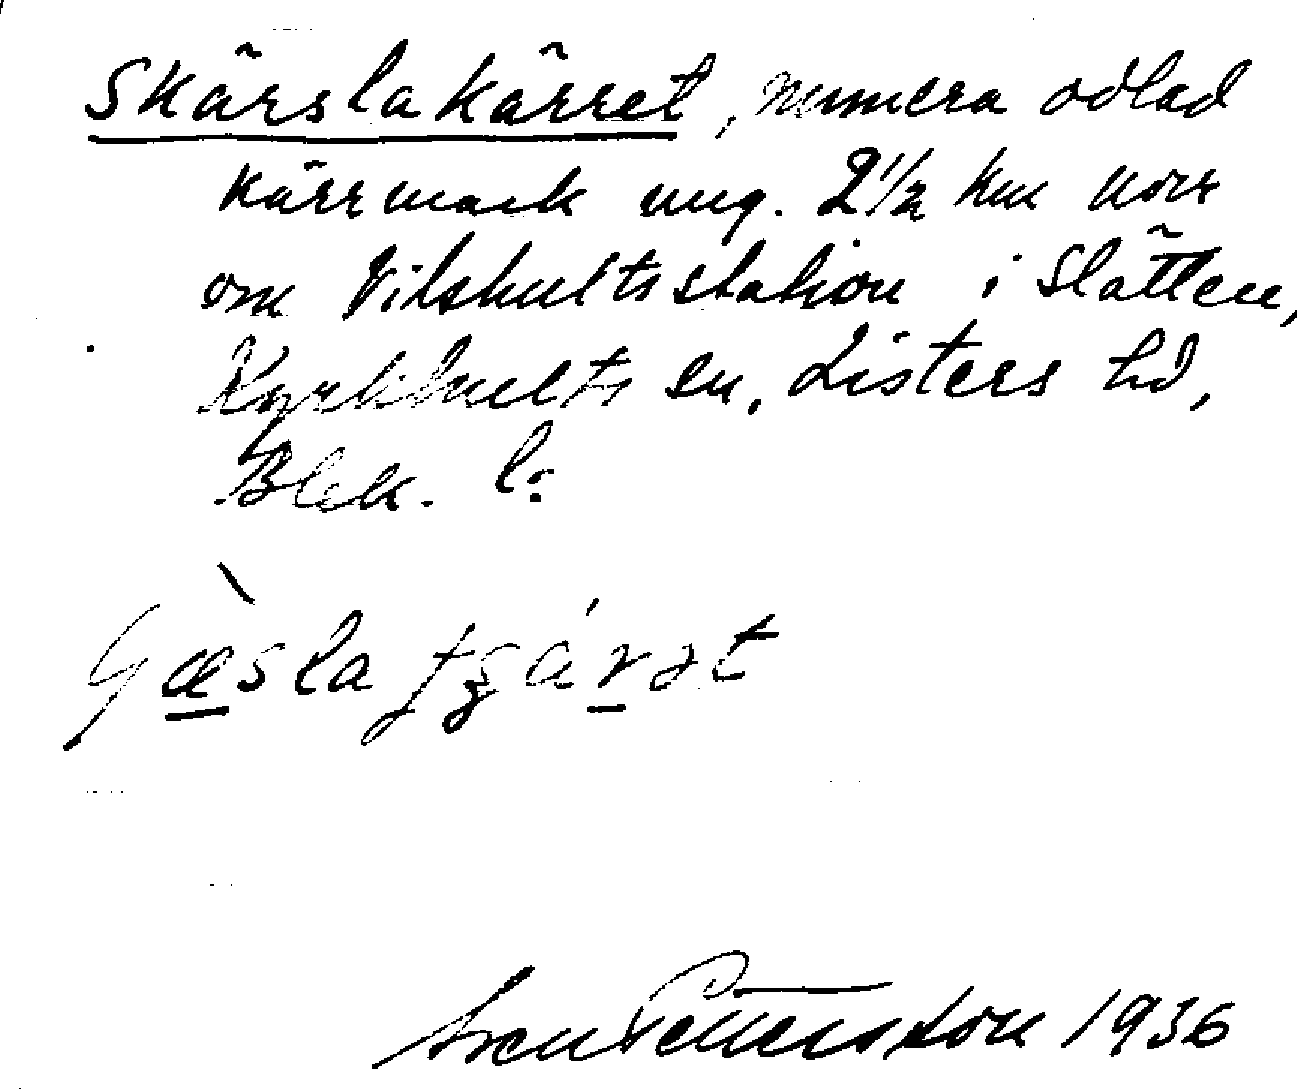 Skärslakärret, numera odlad
kärrmark ung. 2 1/2 km norr
om Vilshultsstation i Slätten,
Kyrkhults sn, Listers hd,
Blek. l:
Sven Pettersson 1936